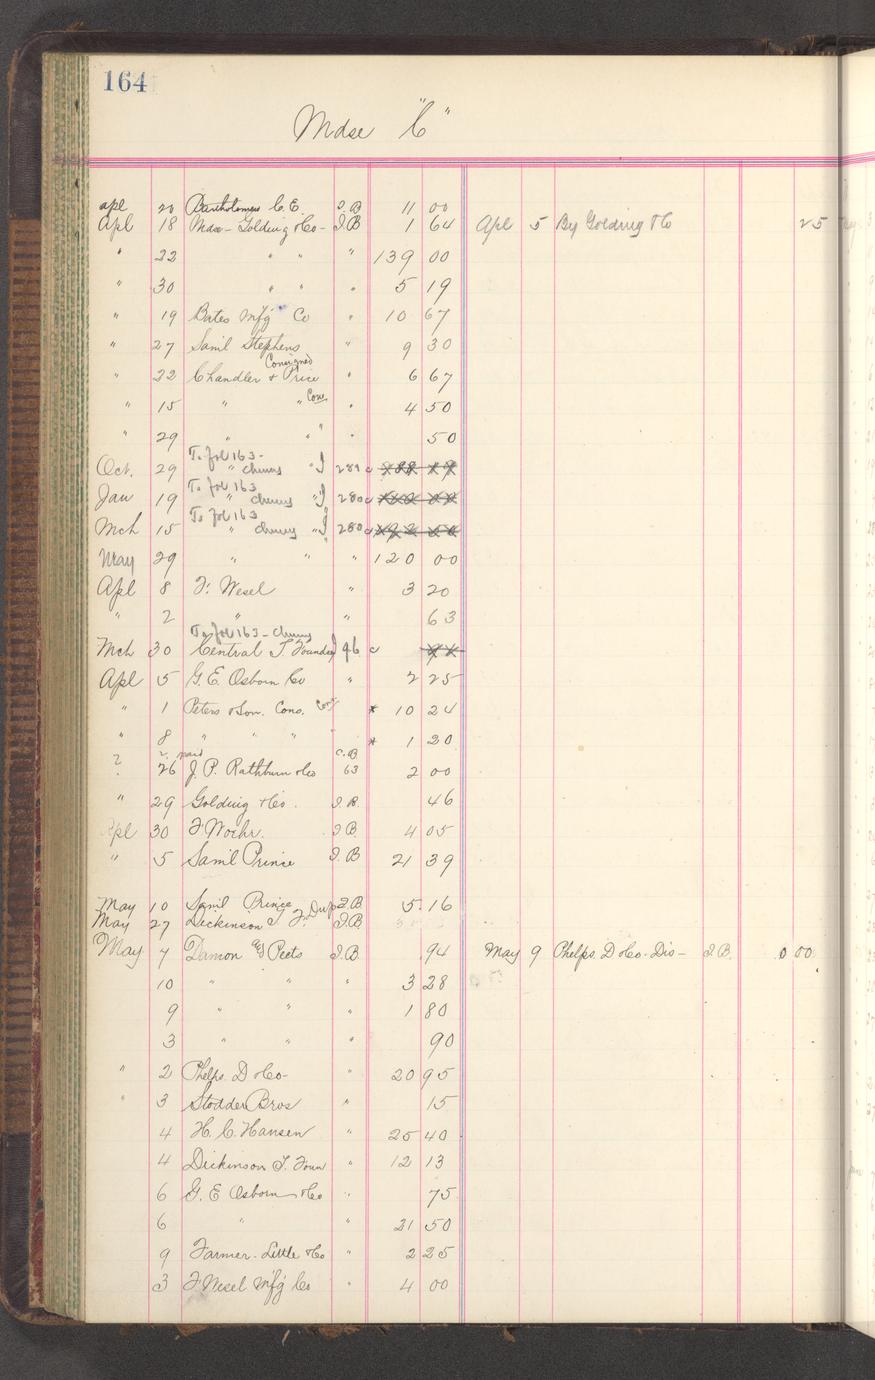 164
Mdse "C"
Apl 20 Bartholomew C. E. I.B 11 00
Apl 18 Mdse - Golding & Co - I.B 1 64 Apl 5 By Golding & Co 25
" 22 " " " 139 00
" 30 " " " 5 19
" 19 Bates Mfg Co " 10 67
" 27 Saml Stephens " 9 30
Consigned
" 22 Chandler & Price " 6 67
" 15 " " Cons. " 4 50
" 29 " " " " 50
To fol 163 -
Oct. 29 " chums " J 281
To fol 163
Jan 19 " chums " J 280
To fol 163
Mch 15 " chums " J 280
May 29 " " " 120 00
Apl 8 F. Wesel " 3 20
" 2 " " 63
To fol 163 - chums
Mch 30 Central T. Foundry J 46
Apl 5 G. E. Osborn Co " 2 25
" 1 Peters & Son. Cons. * 10 24
" 8 " " " " * 1 20
? 2 paid C.B.
" 26 J. P. Rathburn & Co 63 2 00
" 29 Golding & Co. I.B. 46
Apl 30 F. Woehr. I B. 4 05
" 5 Sam'l Prince I.B 21 39
May 10 Saml Prince I.B. 5.16
May 27 Dickinson T. F. Dup I.B.
May 7 Damon & Peets I.B. .94 May 9 Phelps. D & Co. Dis - I.B. .0 00
10 " " " 3 28
9 " " " 1 80
3 " " 90
" 2 Phelps. D & Co - " 20 95
" 3 Stodder Bros " 15
4 H. C. Hansen " 25 40
4 Dickinson T. Foun " 12 13
6 G. E Osborn & Co " 75
6 " " 21 50
9 Farmer. Little & Co " 2 25
3 F Wesel Mfg Co " 4 00